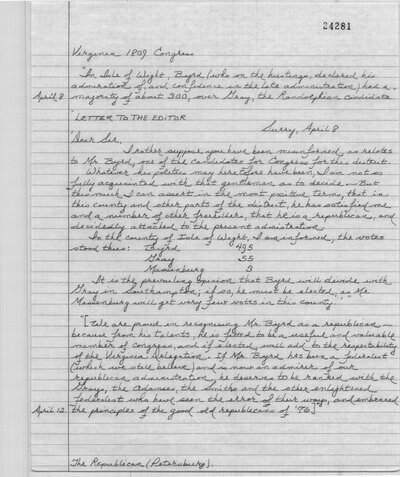 24281
Virginia 1809 Congress
"In Isle of Wight, Byrd (who on the hustings, declared his
admiration of, and confidence in the late administration) had a
April 8 majority of about 300, over Gray, the Randolphian candidate.
LETTER TO THE EDITOR
Surry, April 8
'Dear Sir,
I rather suppose you have been misinformed, as relates
to Mr. Byrd, one of the candidates for Congress for this district.
Whatever his politics may heretofore have been, I am not so
fully acquainted with that gentleman as to decide — But
this much I can assert in the most positive terms, that in
this county and other parts of the district, he has satisfied me
and a number of other freeholders, that he is a republican, and
decidedly attached to the present administration.
In the county of Isle of Wight, I am informed, the votes
stood thus: Byrd 495
Gray 55
Massenburg 3
It is the prevailing opinion that Byrd will divide with
Gray in Southampton; if so, he must be elected, as Mr.
Massenburg will get very few votes in this county.'"
"[We are proud in recognising Mr. Byrd as a republican —
because from his talents, he is fitted to be a useful and valuable
member of Congress, and if elected will add to the respectability
of the Virginia Delegation. If Mr. Byrd has been a federalist
(which we still believe) and is now an admirer of our
republican administration, he deserves to be ranked with the
Grays, the Adamses, the Smiths and the other enlightened
federalist who have seen the error of their ways, and embraced
April 12. the principles of the good old republicans of '76]
The Republican (Petersburg).